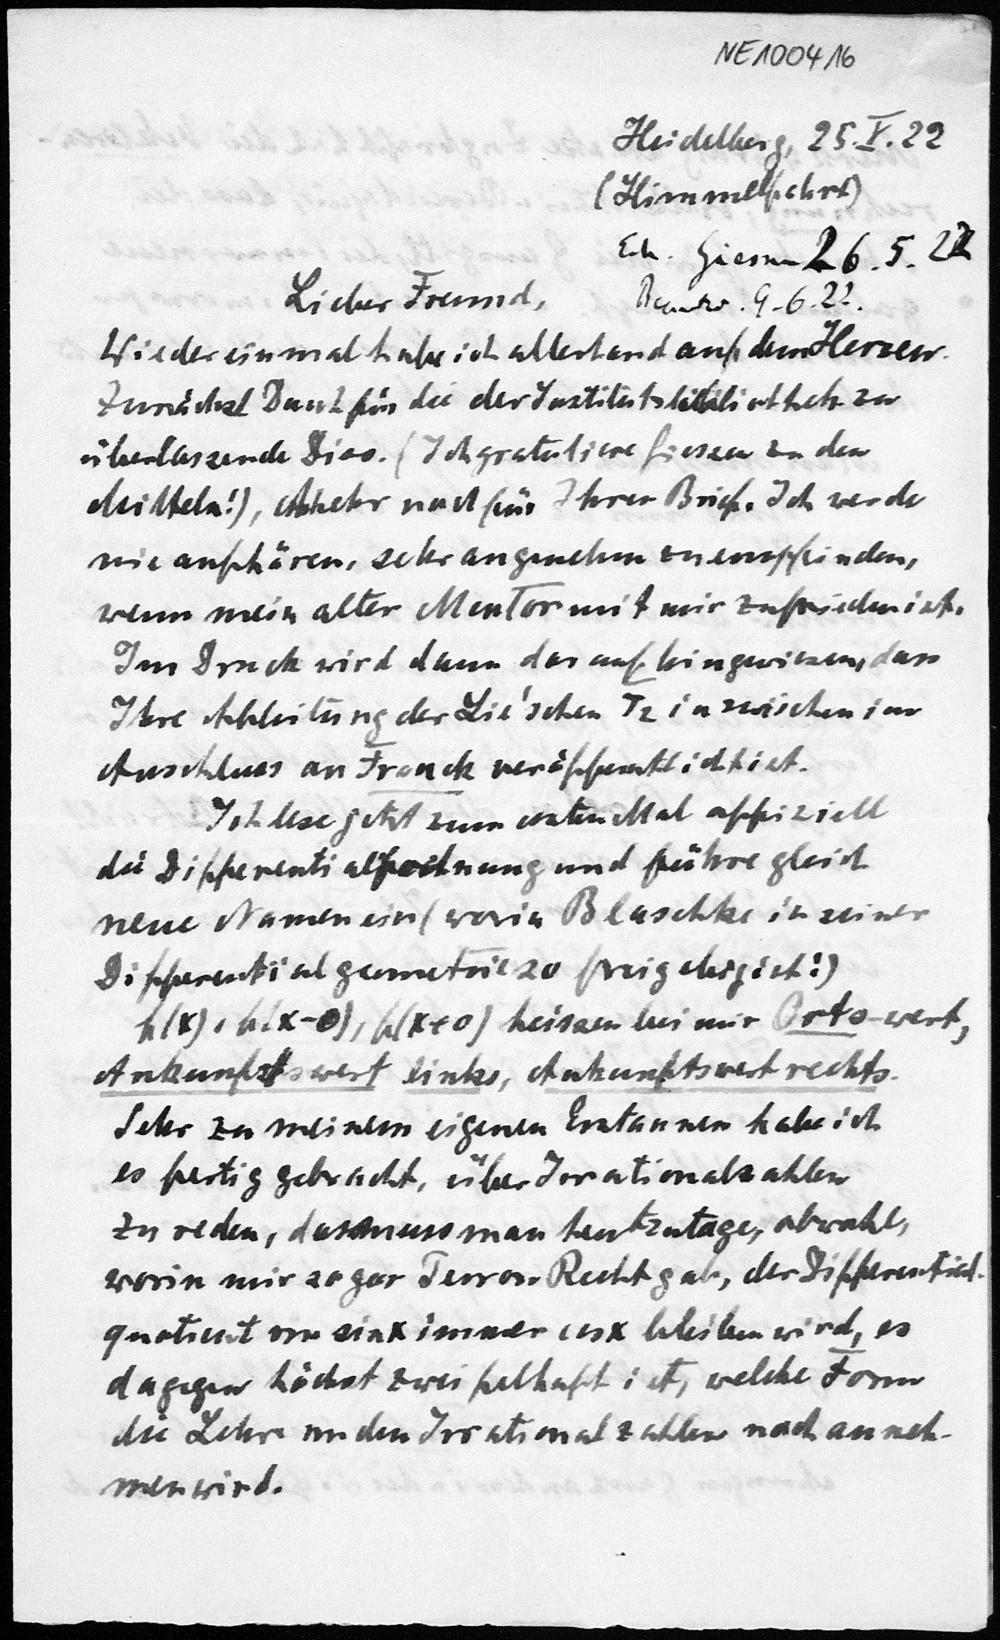 NE100416
Heidelberg, 25.V.22
(Himmelfahrt)
Erh. Giessen 26.5.22
Beantw. 9.6.22.
Lieber Freund,
Wieder einmal habe ich allerhand auf dem Herzen.
Zunächst Dank für die der Institutsbibliothek zu
überlassende Diss. (Ich gratuliere Giessen zu den
Mitteln!), Mehr noch für Ihren Brief. Ich werde
nie aufhören, sehr angenehm zu empfinden,
wenn mein alter Mentor mit mir zufrieden ist.
Im Druck wird dann darauf hingewiesen, dass
Ihre Ableitung der Lie'schen T2 inzwischen im
Anschluss an Franck veröffentlicht ist.
Ich lese jetzt zum ersten Mal offiziell
die Differentialrechnung und führe gleich
neue Namen ein (worin Blaschke in seiner
Differentialgeometrie so freigebig ist!)
f(x), f(x-0), f(x+0) heissen bei mir Ortswert,
Ankunftswert links, Ankunftswert rechts.
Sehr zu meinem eigenen Erstaunen habe ich
es fertig gebracht, über Irrationalzahlen
zu reden, das muss man heutzutage, obwohl,
worin mir sogar Perron Recht gab, der Differential-
quotient von sin x immer cos x bleiben wird, es
dagegen höchst zweifelhaft ist, welche Form
die Lehre von den Irrationalzahlen noch anneh-
men wird.